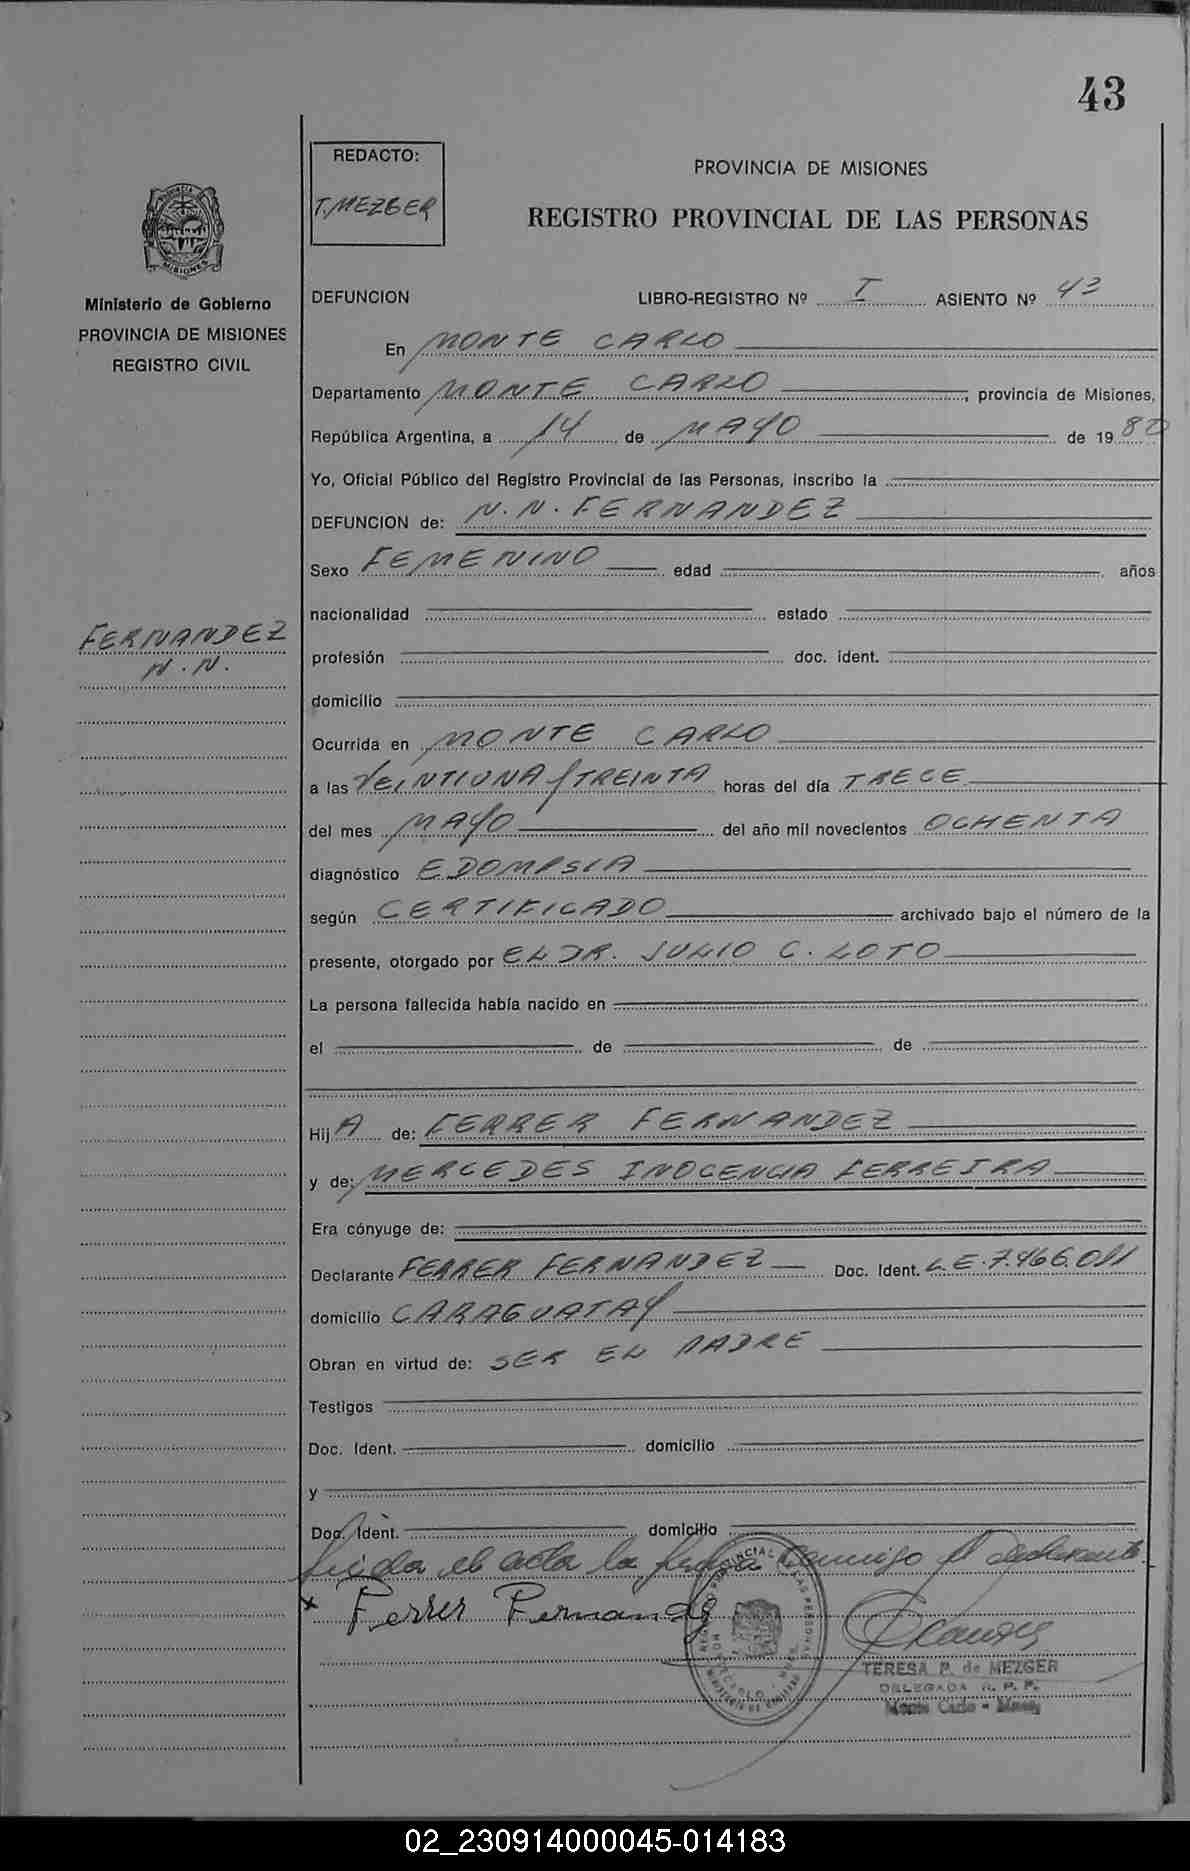 43
REDACTO:
T. MEZGER
PROVINCIA DE MISIONES
REGISTRO PROVINCIAL DE LAS PERSONAS
MISIONES
Ministerio de Gobierno
PROVINCIA DE MISIONES
REGISTRO CIVIL
DEFUNCION LIBRO-REGISTRO Nº I ASIENTO Nº 43
En MONTE CARLO
Departamento MONTE CARLO, provincia de Misiones,
República Argentina, a 14 de MAYO de 1980
Yo, Oficial Público del Registro Provincial de las Personas, inscribo la
DEFUNCION de: N.N. FERNANDEZ
Sexo FEMENINO edad años
nacionalidad estado
FERNANDEZ
N.N.
profesión doc. ident.
domicilio
Ocurrida en MONTE CARLO
a las VEINTIUNA / TREINTA horas del día TRECE
del mes MAYO del año mil novecientos OCHENTA
diagnóstico EDOMPSIA
según CERTIFICADO archivado bajo el número de la
presente, otorgado por EL DR. JULIO C. LOTO
La persona fallecida había nacido en
el de de
HijA de: FERRER FERNANDEZ
y de: MERCEDES INOCENCIA FERREIRA
Era cónyuge de:
Declarante FERRER FERNANDEZ Doc. Ident. L.E. 7.466.011
domicilio CARAGUATAY
Obran en virtud de: SER EL PADRE
Testigos
Doc. Ident. domicilio
y
Doc. Ident. domicilio
leida el acta la firma conmigo el declarante
x Ferrer Fernandez
TERESA P. de MEZGER
DELEGADA R. P. P.
Monte Carlo - Mnes
02_230914000045-014183